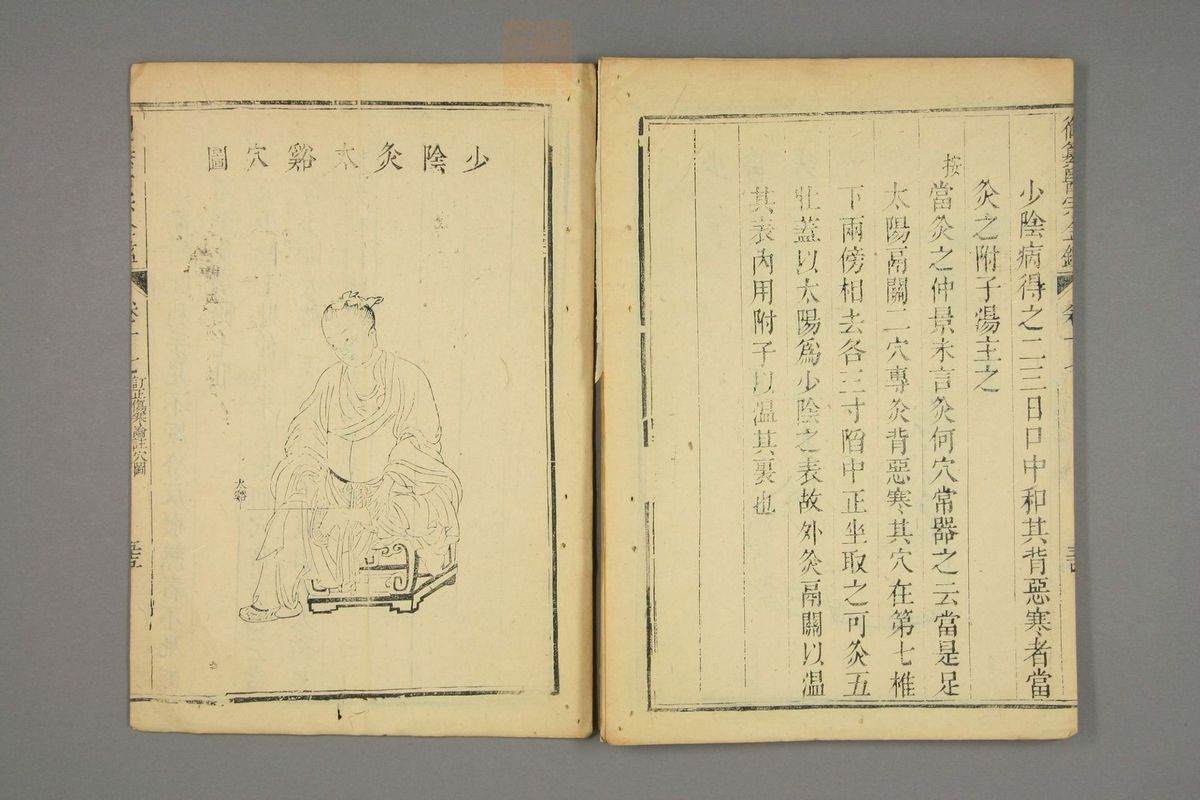 御纂醫宗金鑑 卷十七
少陰病得之一二日口中和其背惡寒者當
灸之附子湯主之
按
當灸之仲景未言灸何穴常器之云當是足
太陽鬲關二穴專灸背惡寒其穴在第七椎
下兩傍相去各三寸陷中正坐取之可灸五
壯蓋以太陽為少陰之表故外灸鬲關以溫
其表內用附子以溫其裏也
少陰灸太谿穴圖
太谿
卷十七
訂正傷寒論註穴圖